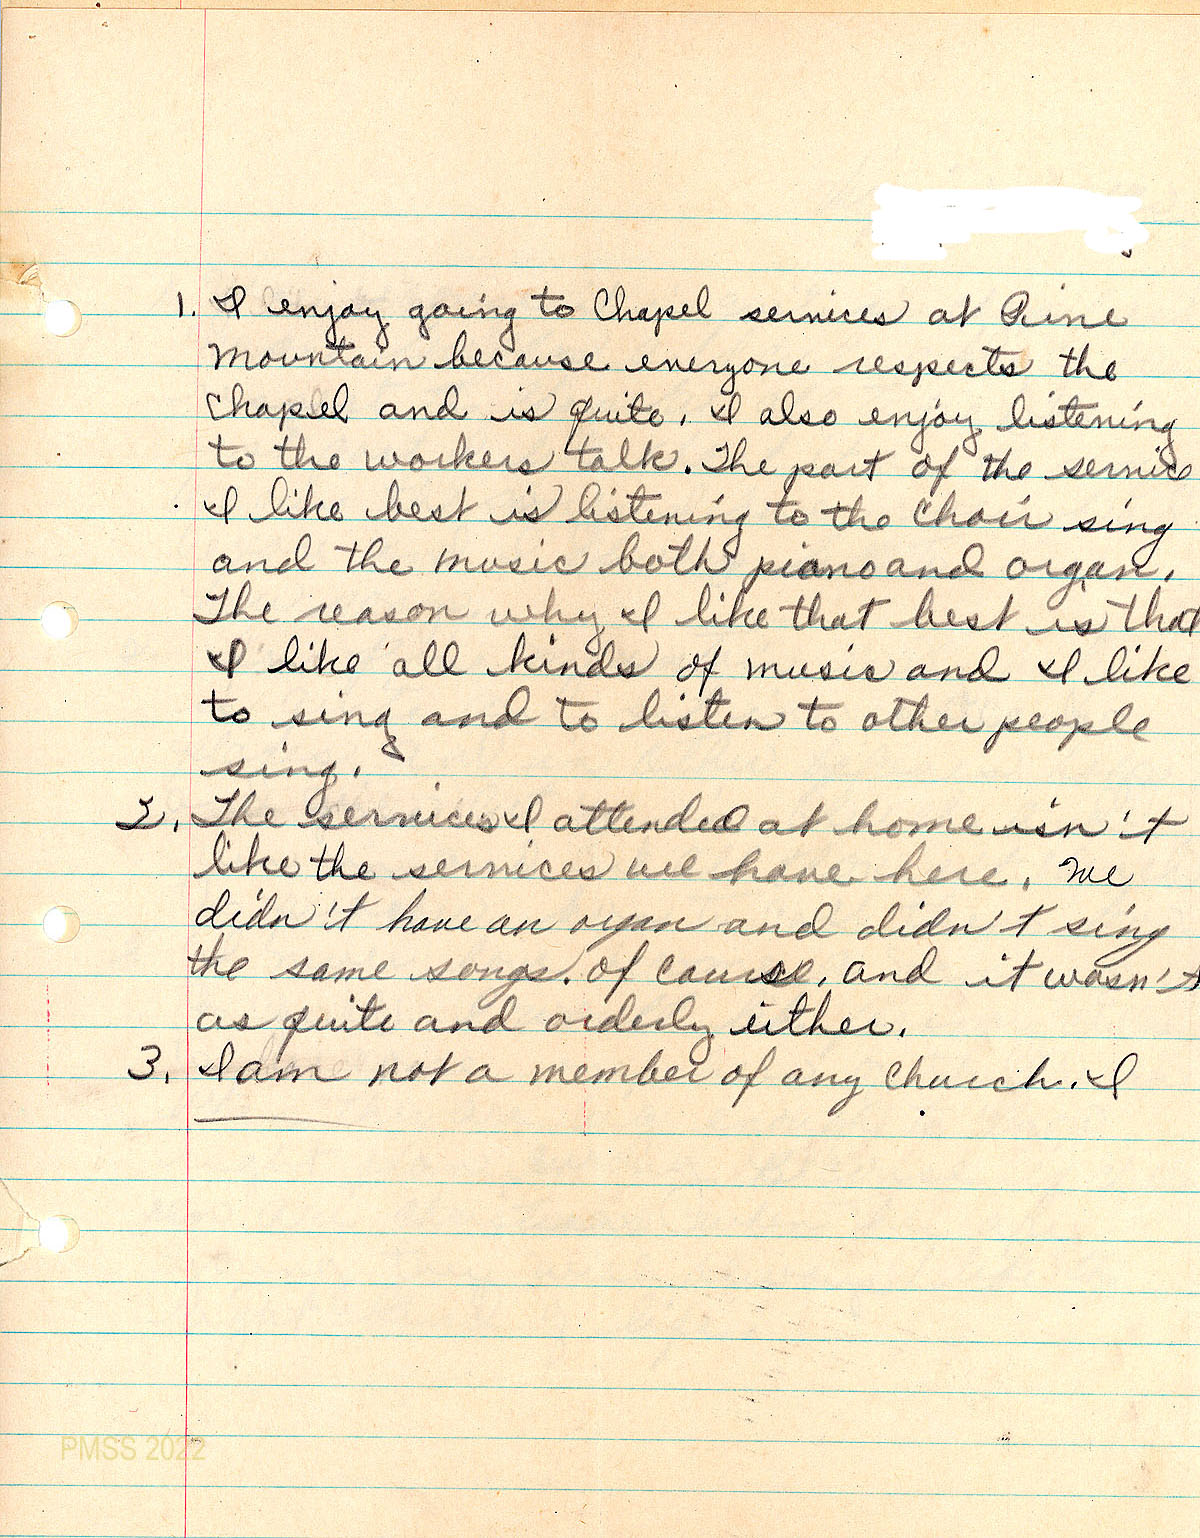 1. I enjoy going to Chapel services at Pine
Mountain because everyone respects the
Chapel and is quite. I also enjoy listening
to the workers talk. The part of the service
I like best is listening to the Choir sing
and the music both piano and organ.
The reason why I like that best is that
I like all kinds of music and I like
to sing and to listen to other people
sing.
2. The services I attended at home isn't
like the services we have here. We
didn't have an organ and didn't sing
the same songs. of course, and it wasn't
as quite and orderly either.
3. I am not a member of any Church. I
PMSS 2022